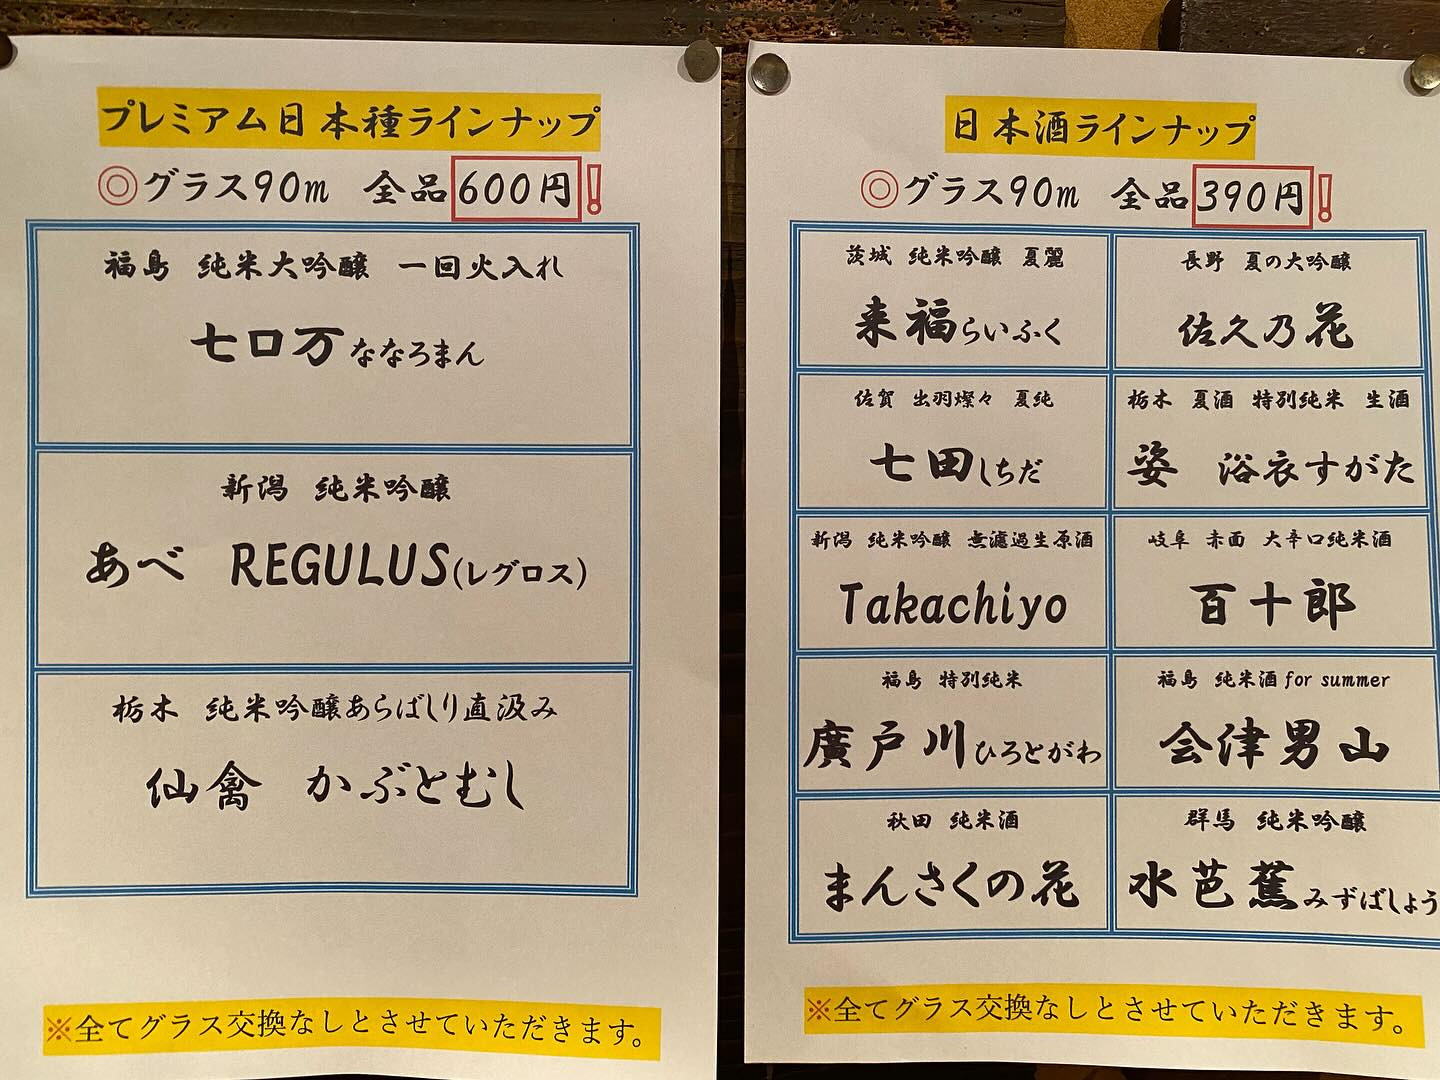 プレミアム日本種ラインナップ
◎グラス90m 全品600円!
福島 純米大吟醸 一回火入れ
七口万ななろまん
新潟 純米吟醸
あべ REGULUS(レグロス)
栃木 純米吟醸あらばしり直汲み
仙禽 かぶとむし
※全てグラス交換なしとさせていただきます。
日本酒ラインナップ
◎グラス90m 全品390円!
茨城 純米吟醸 夏麗
来福らいふく
長野 夏の大吟醸
佐久乃花
佐賀 出羽燦々 夏純
七田しちだ
栃木 夏酒 特別純米 生酒
姿 浴衣すがた
新潟 純米吟醸 無濾過生原酒
Takachiyo
岐阜 赤面 大辛口純米酒
百十郎
福島 特別純米
廣戸川ひろとがわ
福島 純米酒for summer
会津男山
秋田 純米酒
まんさくの花
群馬 純米吟醸
水芭蕉みずばしょう
※全てグラス交換なしとさせていただきます。